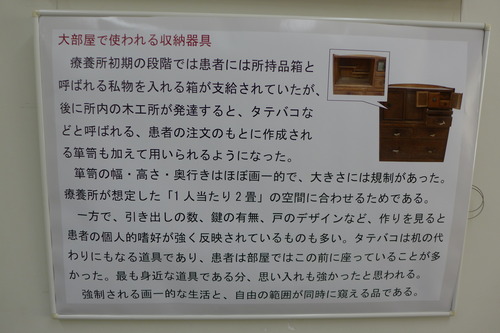 大部屋で使われる収納器具
療養所初期の段階では患者には所持品箱と
呼ばれる私物を入れる箱が支給されていたが、
後に所内の木工所が発達すると、タテバコな
どと呼ばれる、患者の注文のもとに作成され
る箪笥も加えて用いられるようになった。
箪笥の幅・高さ・奥行きはほぼ画一的で、大きさには規制があった。
療養所が想定した「1人当たり2畳」の空間に合わせるためである。
一方で、引き出しの数、鍵の有無、戸のデザインなど、作りを見ると
患者の個人的嗜好が強く反映されているものも多い。タテバコは机の代
わりにもなる道具であり、患者は部屋ではこの前に座っていることが多
かった。最も身近な道具である分、思い入れも強かったと思われる。
強制される画一的な生活と、自由の範囲が同時に窺える品である。